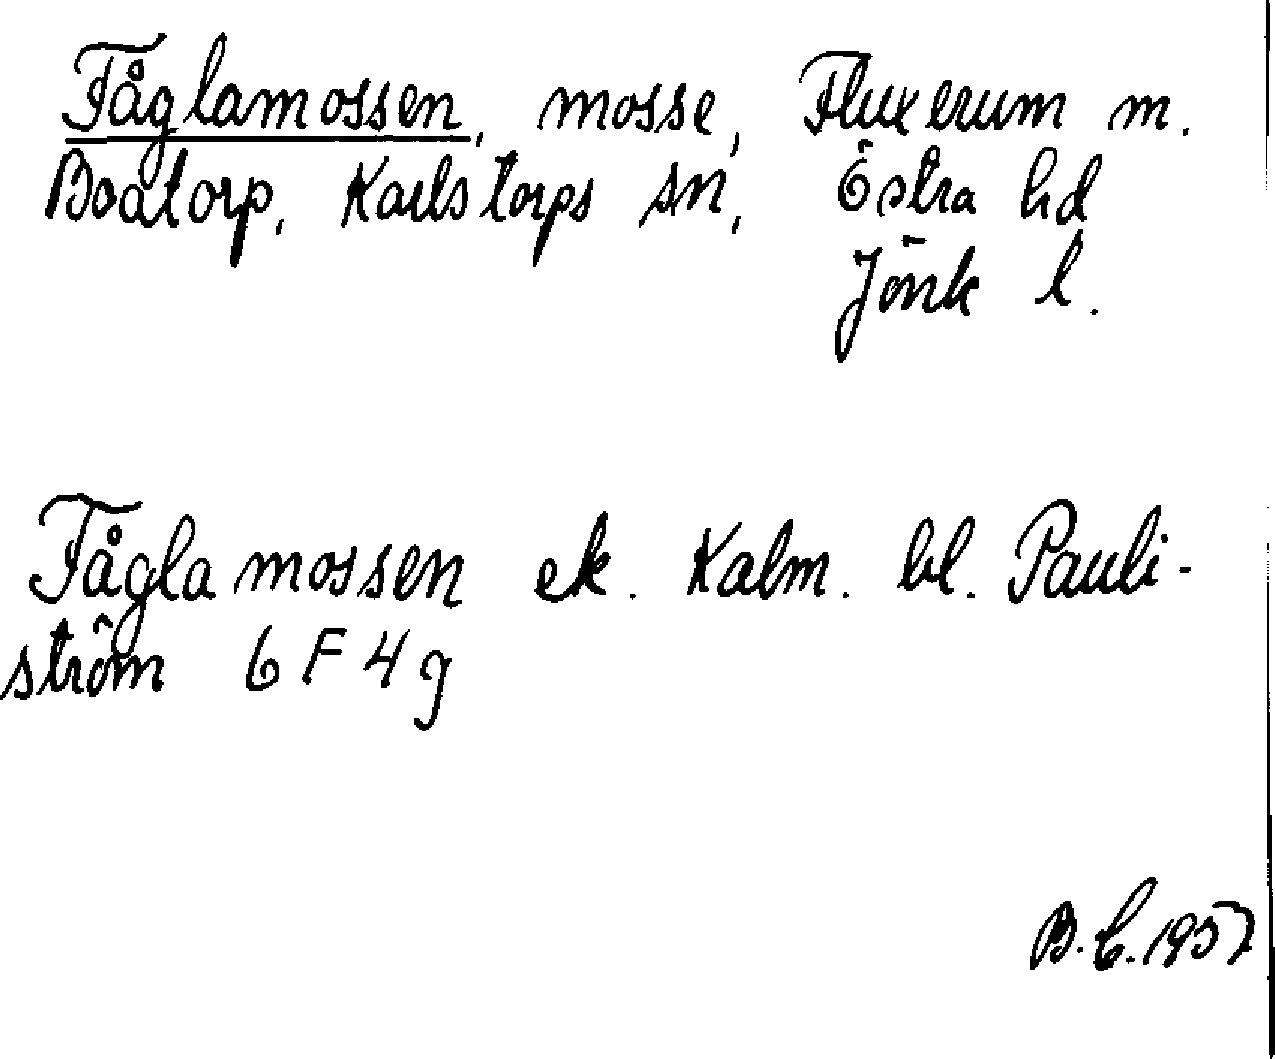 Fåglamossen, mosse, Fluxerum m.
Boatorp, Karlstorps sn, Östra hd
Jönk l.
Fåglamossen ek. Kalm. bl. Pauli-
ström 6 F 4 g
B. C. 1957